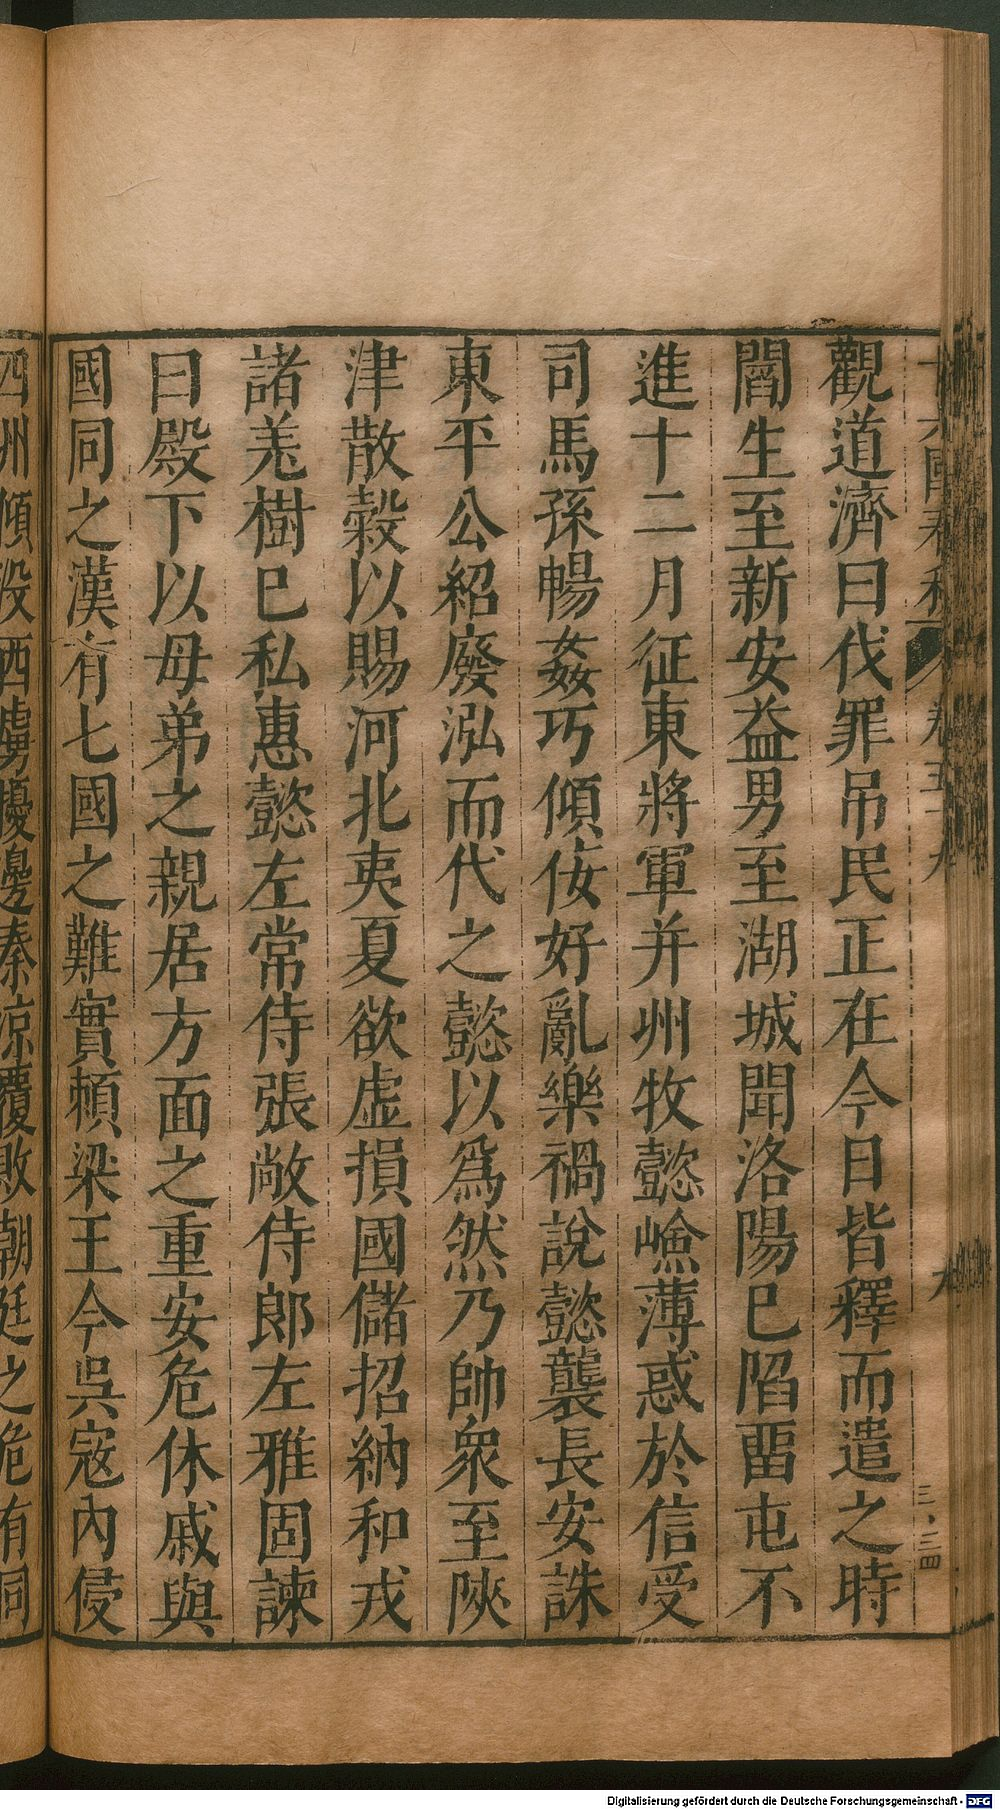 觀道濟曰伐罪吊民正在今日皆釋而遣之時
閻生至新安益男至湖城聞洛陽巳陷畱屯不
進十二月征東將軍并州牧懿嶮薄惑於信受
司馬孫暢姦巧傾佞好亂樂禍說懿襲長安誅
東平公紹廢泓而代之懿以爲然乃帥衆至陜
津散穀以賜河北夷夏欲虛損國儲招納和戎
諸羌樹巳私惠懿左常侍張敞侍郎左雅固諫
曰殿下以母弟之親居方面之重安危休戚與
國同之漢有七國之難實賴梁王今吳寇內侵
四州傾没西虜擾邊秦涼覆敗朝廷之危有同
三、三四
Digitalisierung gefördert durch die Deutsche Forschungsgemeinschaft - DFG